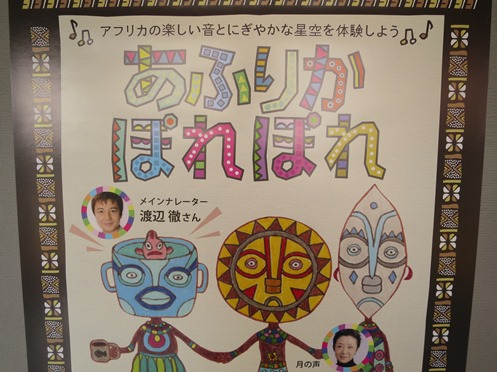 アフリカの楽しい音とにぎやかな星空を体験しよう
あふりか
ぽれぽれ
メインナレーター
渡辺 徹さん
月の声